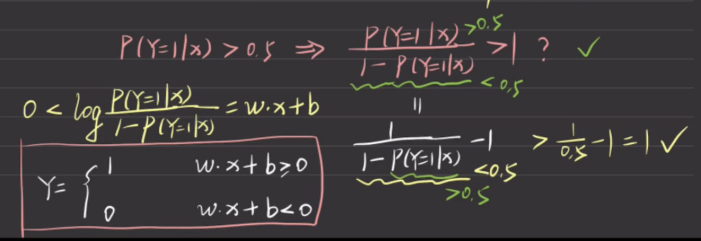 P(Y=1|x) > 0.5 ⇒ P(Y=1|x) >0.5 / 1 - P(Y=1|x) <0.5 > 1 ? ✓
0 < log P(Y=1|x) / 1-P(Y=1|x) = w·x+b
=
1 / 1-P(Y=1|x) <0.5 - 1 > 1/0.5 - 1 = 1 ✓
>0.5
Y= { 1 w·x+b≥0
0 w·x+b<0